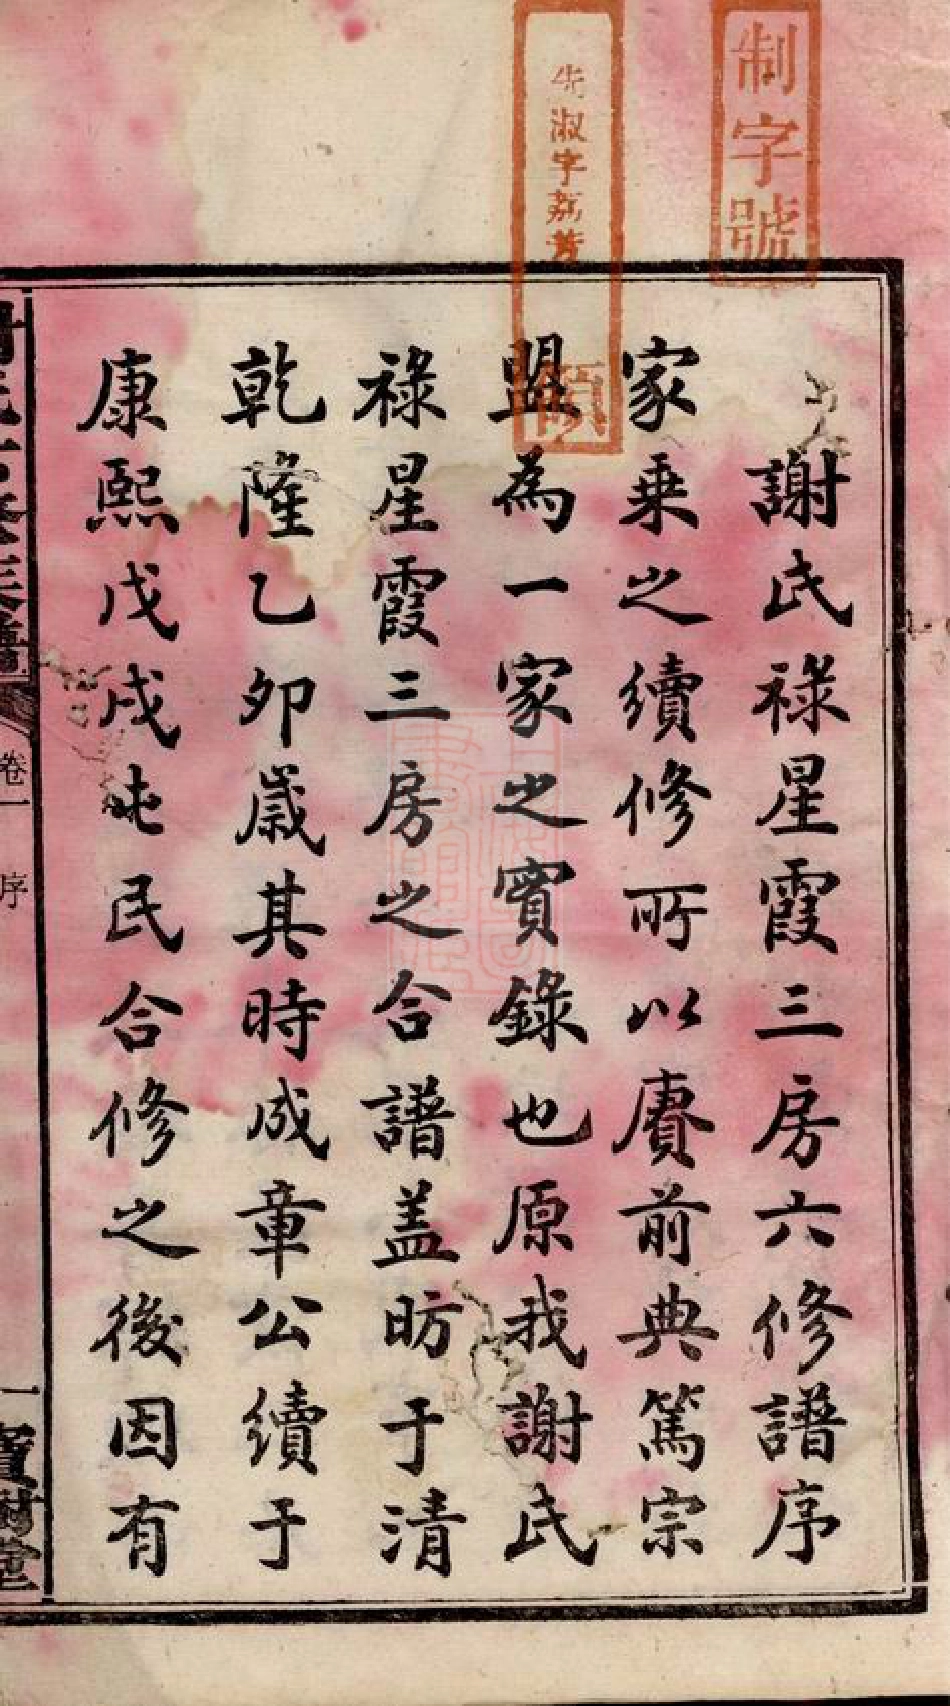 制字號
淑字荔芳
謝氏祿星霞三房六修譜序
家乗之續修所以賡前典篤宗
盟為一家之實錄也原我謝氏
祿星霞三房之合譜盖昉于清
乾隆乙卯嵗其時成章公續于
康熙戊戌屯民合修之後因有
卷一 序 一
寶樹堂